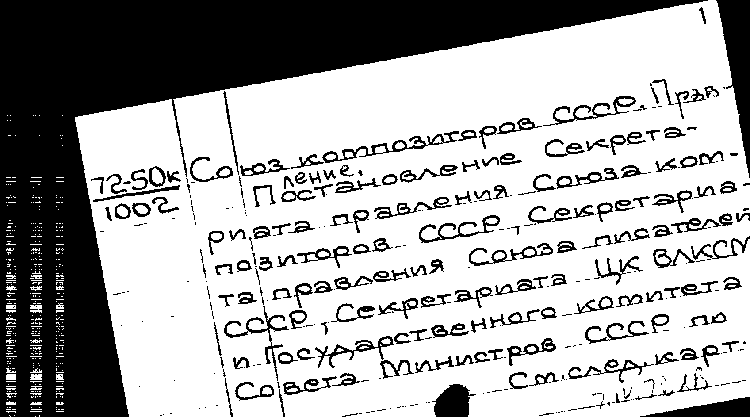 1
72-50к
1002
Союз композиторов СССР. Прав-
ление.
Постановление Секрета-
риата правления Союза ком-
позиторов СССР, Секретариа-
та правления Союза писателей
СССР, Секретариата ЦК ВЛКСМ
и Государственного комитета
Совета Министров СССР по
См. след. карт.